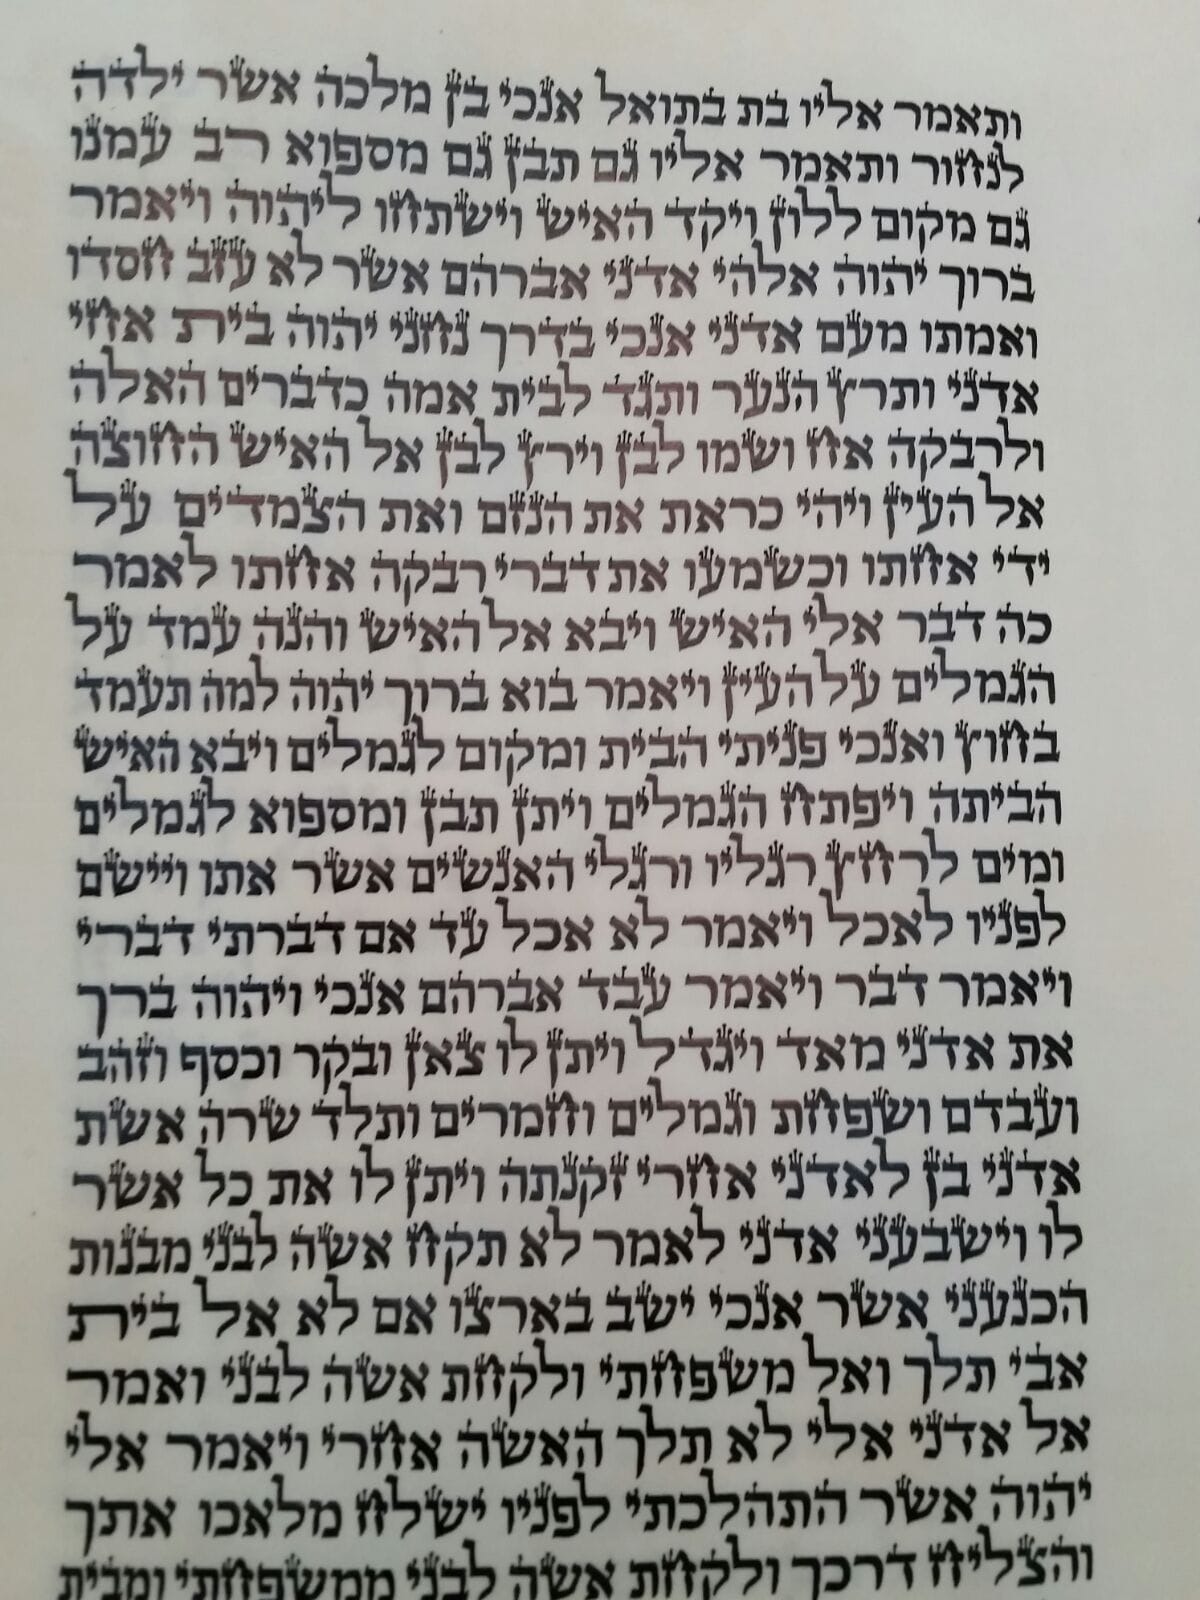 ותאמר אליו בת בתואל אנכי בן מלכה אשר ילדה
לנחור ותאמר אליו גם תבן גם מספוא רב עמנו
גם מקום ללון ויקד האיש וישתחו ליהוה ויאמר
ברוך יהוה אלהי אדני אברהם אשר לא עזב חסדו
ואמתו מעם אדני אנכי בדרך נחני יהוה בית אחי
אדני ותרץ הנער ותגד לבית אמה כדברים האלה
ולרבקה אח ושמו לבן וירץ לבן אל האיש החוצה
אל העין ויהי כראת את הנזם ואת הצמדים על
ידי אחתו וכשמעו את דברי רבקה אחתו לאמר
כה דבר אלי האיש ויבא אל האיש והנה עמד על
הגמלים על העין ויאמר בוא ברוך יהוה למה תעמד
בחוץ ואנכי פניתי הבית ומקום לגמלים ויבא האיש
הביתה ויפתח הגמלים ויתן תבן ומספוא לגמלים
ומים לרחץ רגליו ורגלי האנשים אשר אתו ויישם
לפניו לאכל ויאמר לא אכל עד אם דברתי דברי
ויאמר דבר ויאמר עבד אברהם אנכי ויהוה ברך
את אדני מאד ויגדל ויתן לו צאן ובקר וכסף וזהב
ועבדם ושפחת וגמלים וחמרים ותלד שרה אשת
אדני בן לאדני אחרי זקנתה ויתן לו את כל אשר
לו וישבעני אדני לאמר לא תקח אשה לבני מבנות
הכנעני אשר אנכי ישב בארצו אם לא אל בית
אבי תלך ואל משפחתי ולקחת אשה לבני ואמר
אל אדני אלי לא תלך האשה אחרי ויאמר אלי
יהוה אשר התהלכתי לפניו ישלח מלאכו אתך
והצליח דרכך ולקחת אשה לבני ממשפחתי ומבית